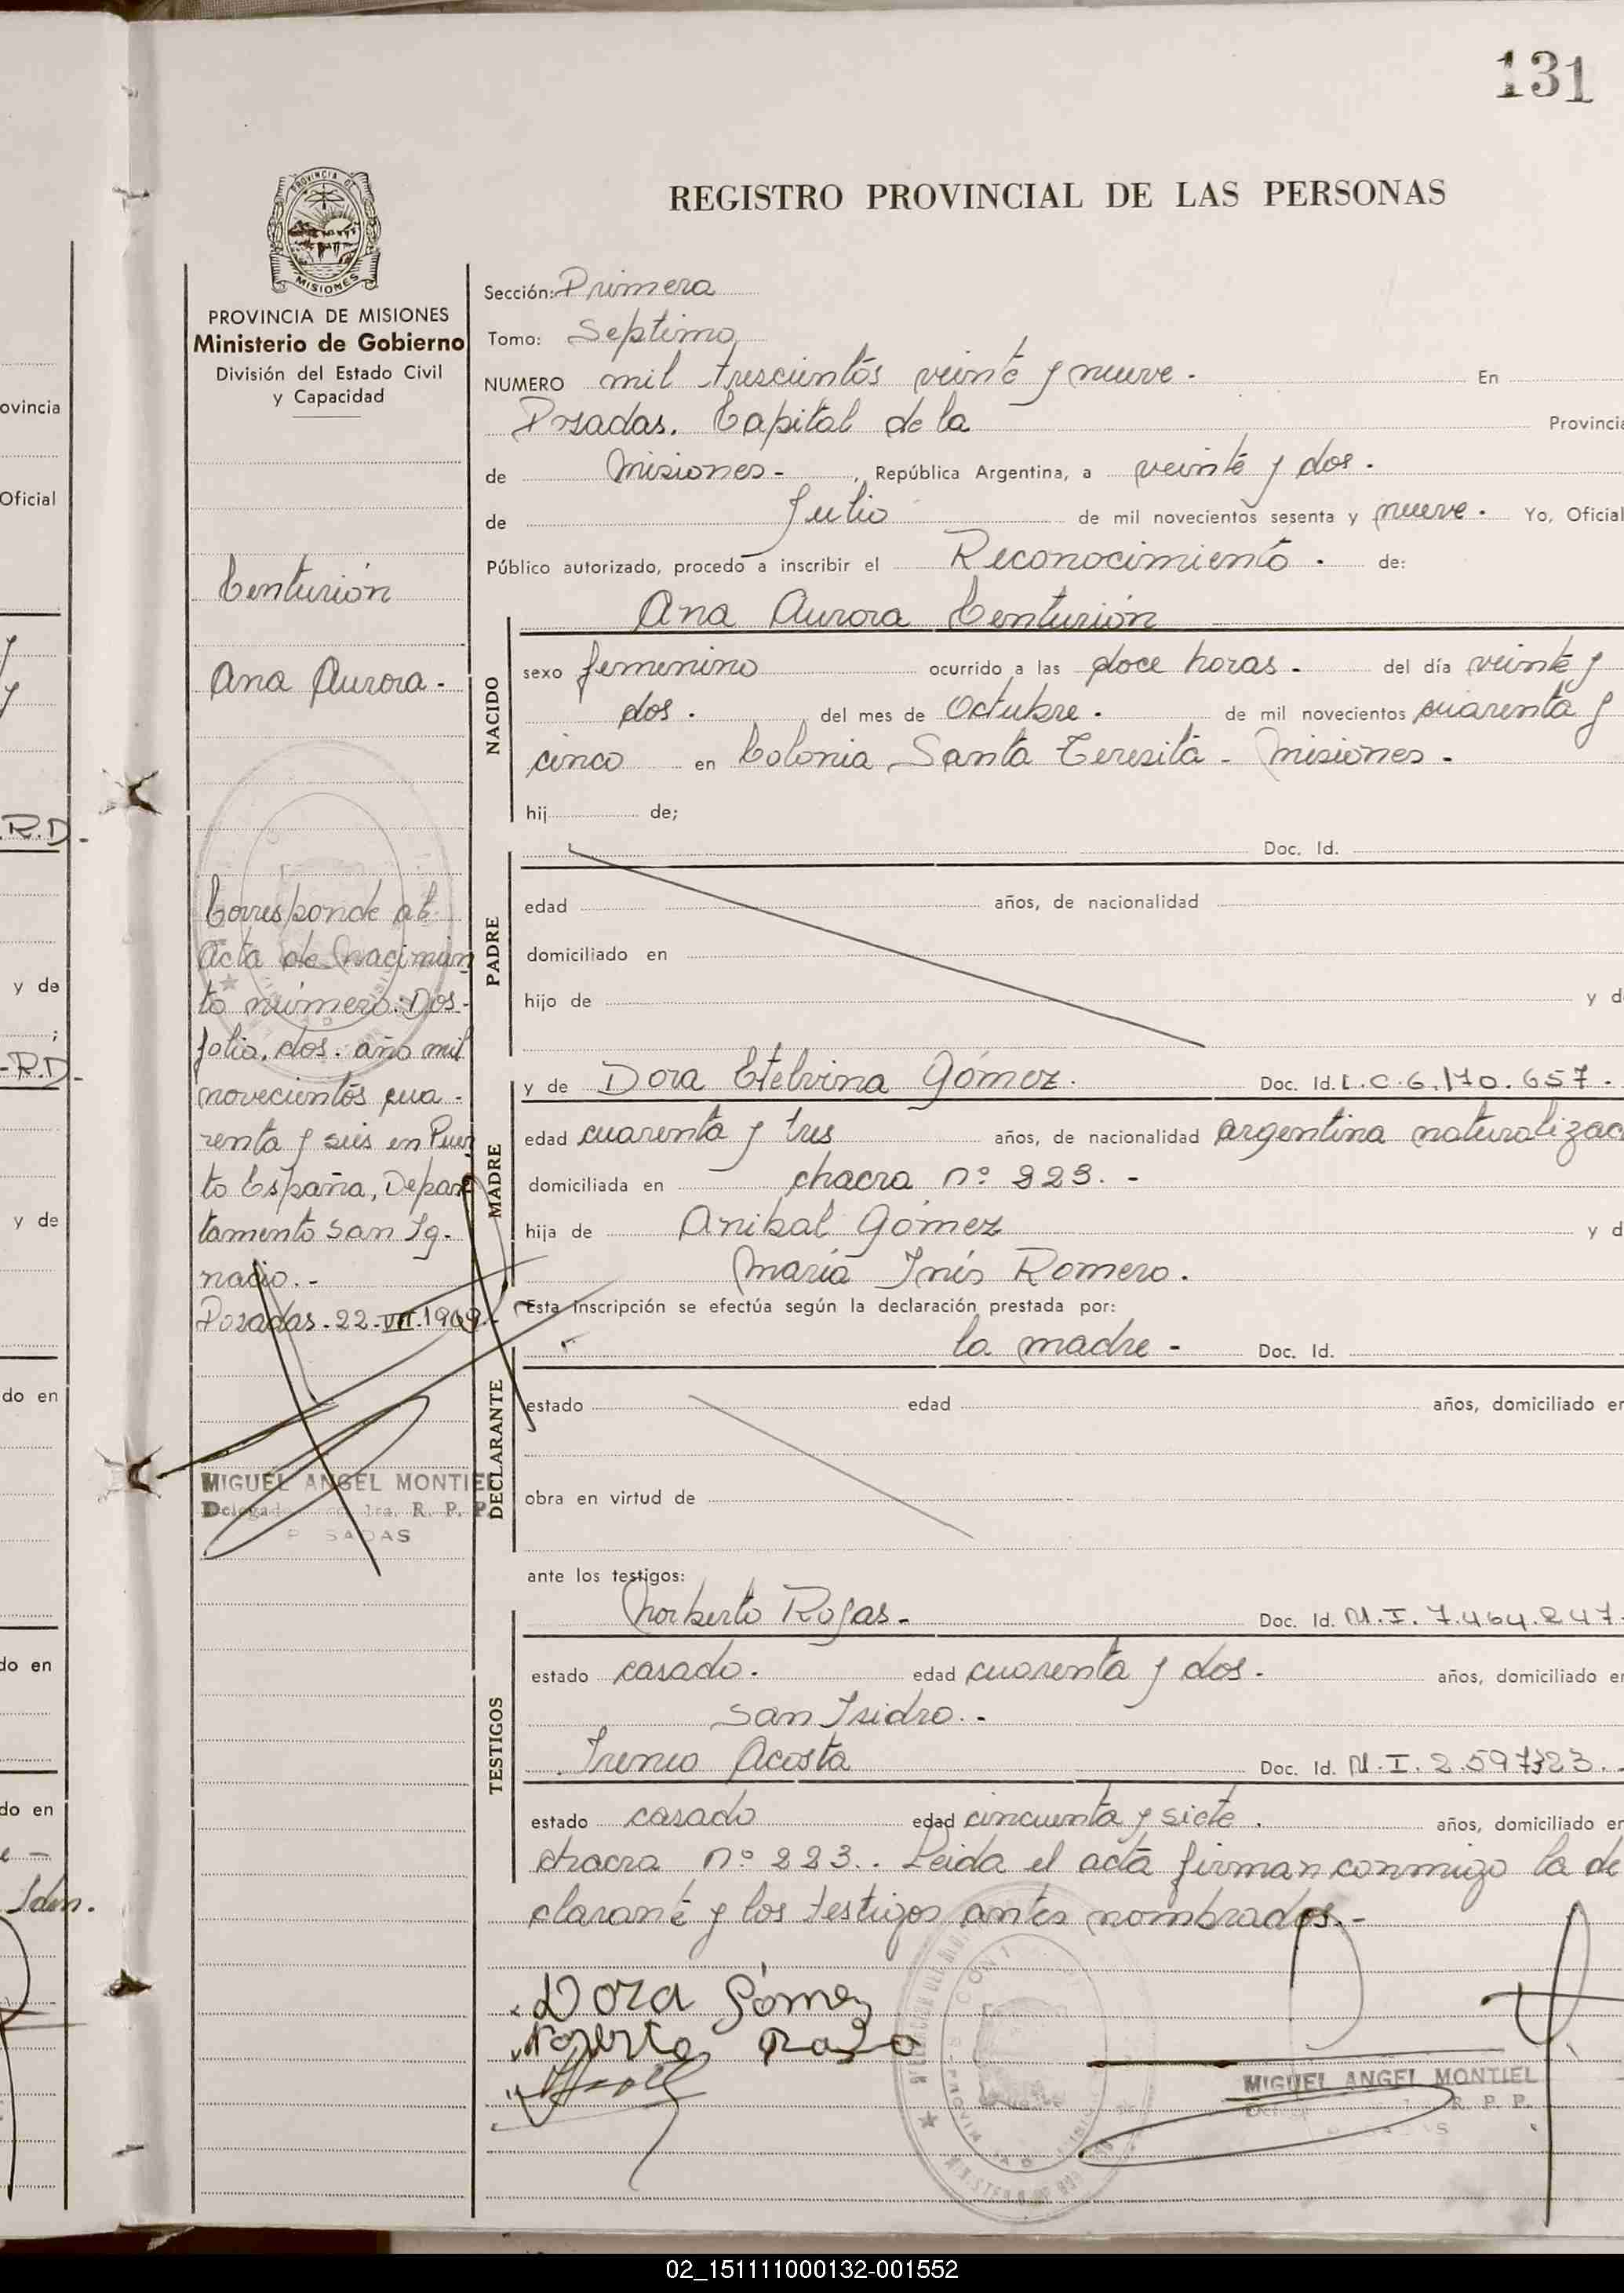 131
REGISTRO PROVINCIAL DE LAS PERSONAS
PROVINCIA DE MISIONES
Ministerio de Gobierno
División del Estado Civil
y Capacidad
Centurión
Ana Aurora.-
Corresponde al
Acta de nacimien
to número: Dos-
folio. dos. año mil
novecientos cua-
renta y seis en Puer
to España, Depar
tamento San Ig-
nacio.-
Posadas-22-VII-1969.
MIGUEL ANGEL MONTIEL
Delegado 1ra. R. P. P.
POSADAS
Sección: Primera
Tomo: Septimo
NUMERO mil trescientos veinte y nueve. En
Posadas. Capital de la Provincia
de Misiones- , República Argentina, a veinte y dos.
de Julio de mil novecientos sesenta y nueve. Yo, Oficial
Público autorizado, procedo a inscribir el Reconocimiento. de:
Ana Aurora Centurión
NACIDO
sexo femenino ocurrido a las doce horas. del día veinte y
dos. del mes de Octubre. de mil novecientos cuarenta y
cinco en Colonia Santa Teresita - Misiones.
hij de;
Doc. Id.
PADRE
edad años, de nacionalidad
domiciliado en
hijo de y d
MADRE
y de Dora Etelvina Gómez. Doc. Id. L.C.6.170.657.
edad cuarenta y tres años, de nacionalidad argentina naturalizad
domiciliada en chacra nº 223.-
hija de Anibal Gómez y d
María Inés Romero.
Esta inscripción se efectúa según la declaración prestada por:
la madre - Doc. Id.
DECLARANTE
estado edad años, domiciliado en
obra en virtud de
ante los testigos:
TESTIGOS
Norberto Rojas.- Doc. Id. M.I. 7.464.247.
estado casado. edad cuarenta y dos. años, domiciliado en
San Isidro.-
Ireneo Acosta Doc. Id. M.I. 2.597.323.-
estado casado edad cincuenta y siete. años, domiciliado en
chacra nº 223.. Leida el acta firman conmigo la de
clarante y los testigos antes nombrados.-
Dora Gómez
MIGUEL ANGEL MONTIEL
R. P. P.
ovincia
Oficial
.R.D.-
y de
;
-R.D.-
y de
do en
do en
do en
Idem.
02_151111000132-001552